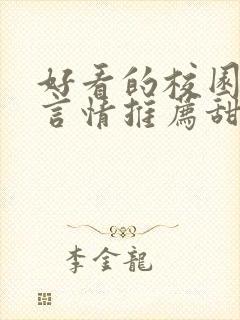 好看的校园
言情推薦甜
李金龍